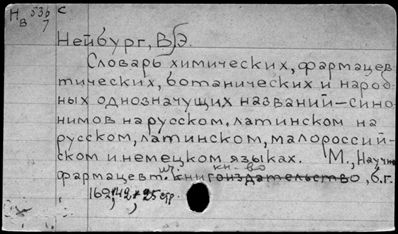 Н 536 с
в 7
Нейбург, В.Э.
Словарь химических, фармацев
тических, ботанических и народ
ных однозначущих названий-сино
нимов на русском, латинском на
русском, латинском, малороссий-
ском и немецком языках. М., Научн
шт. кн-во
фармацевт. книгоиздательство, б.г.
162, 142, 25 стр.